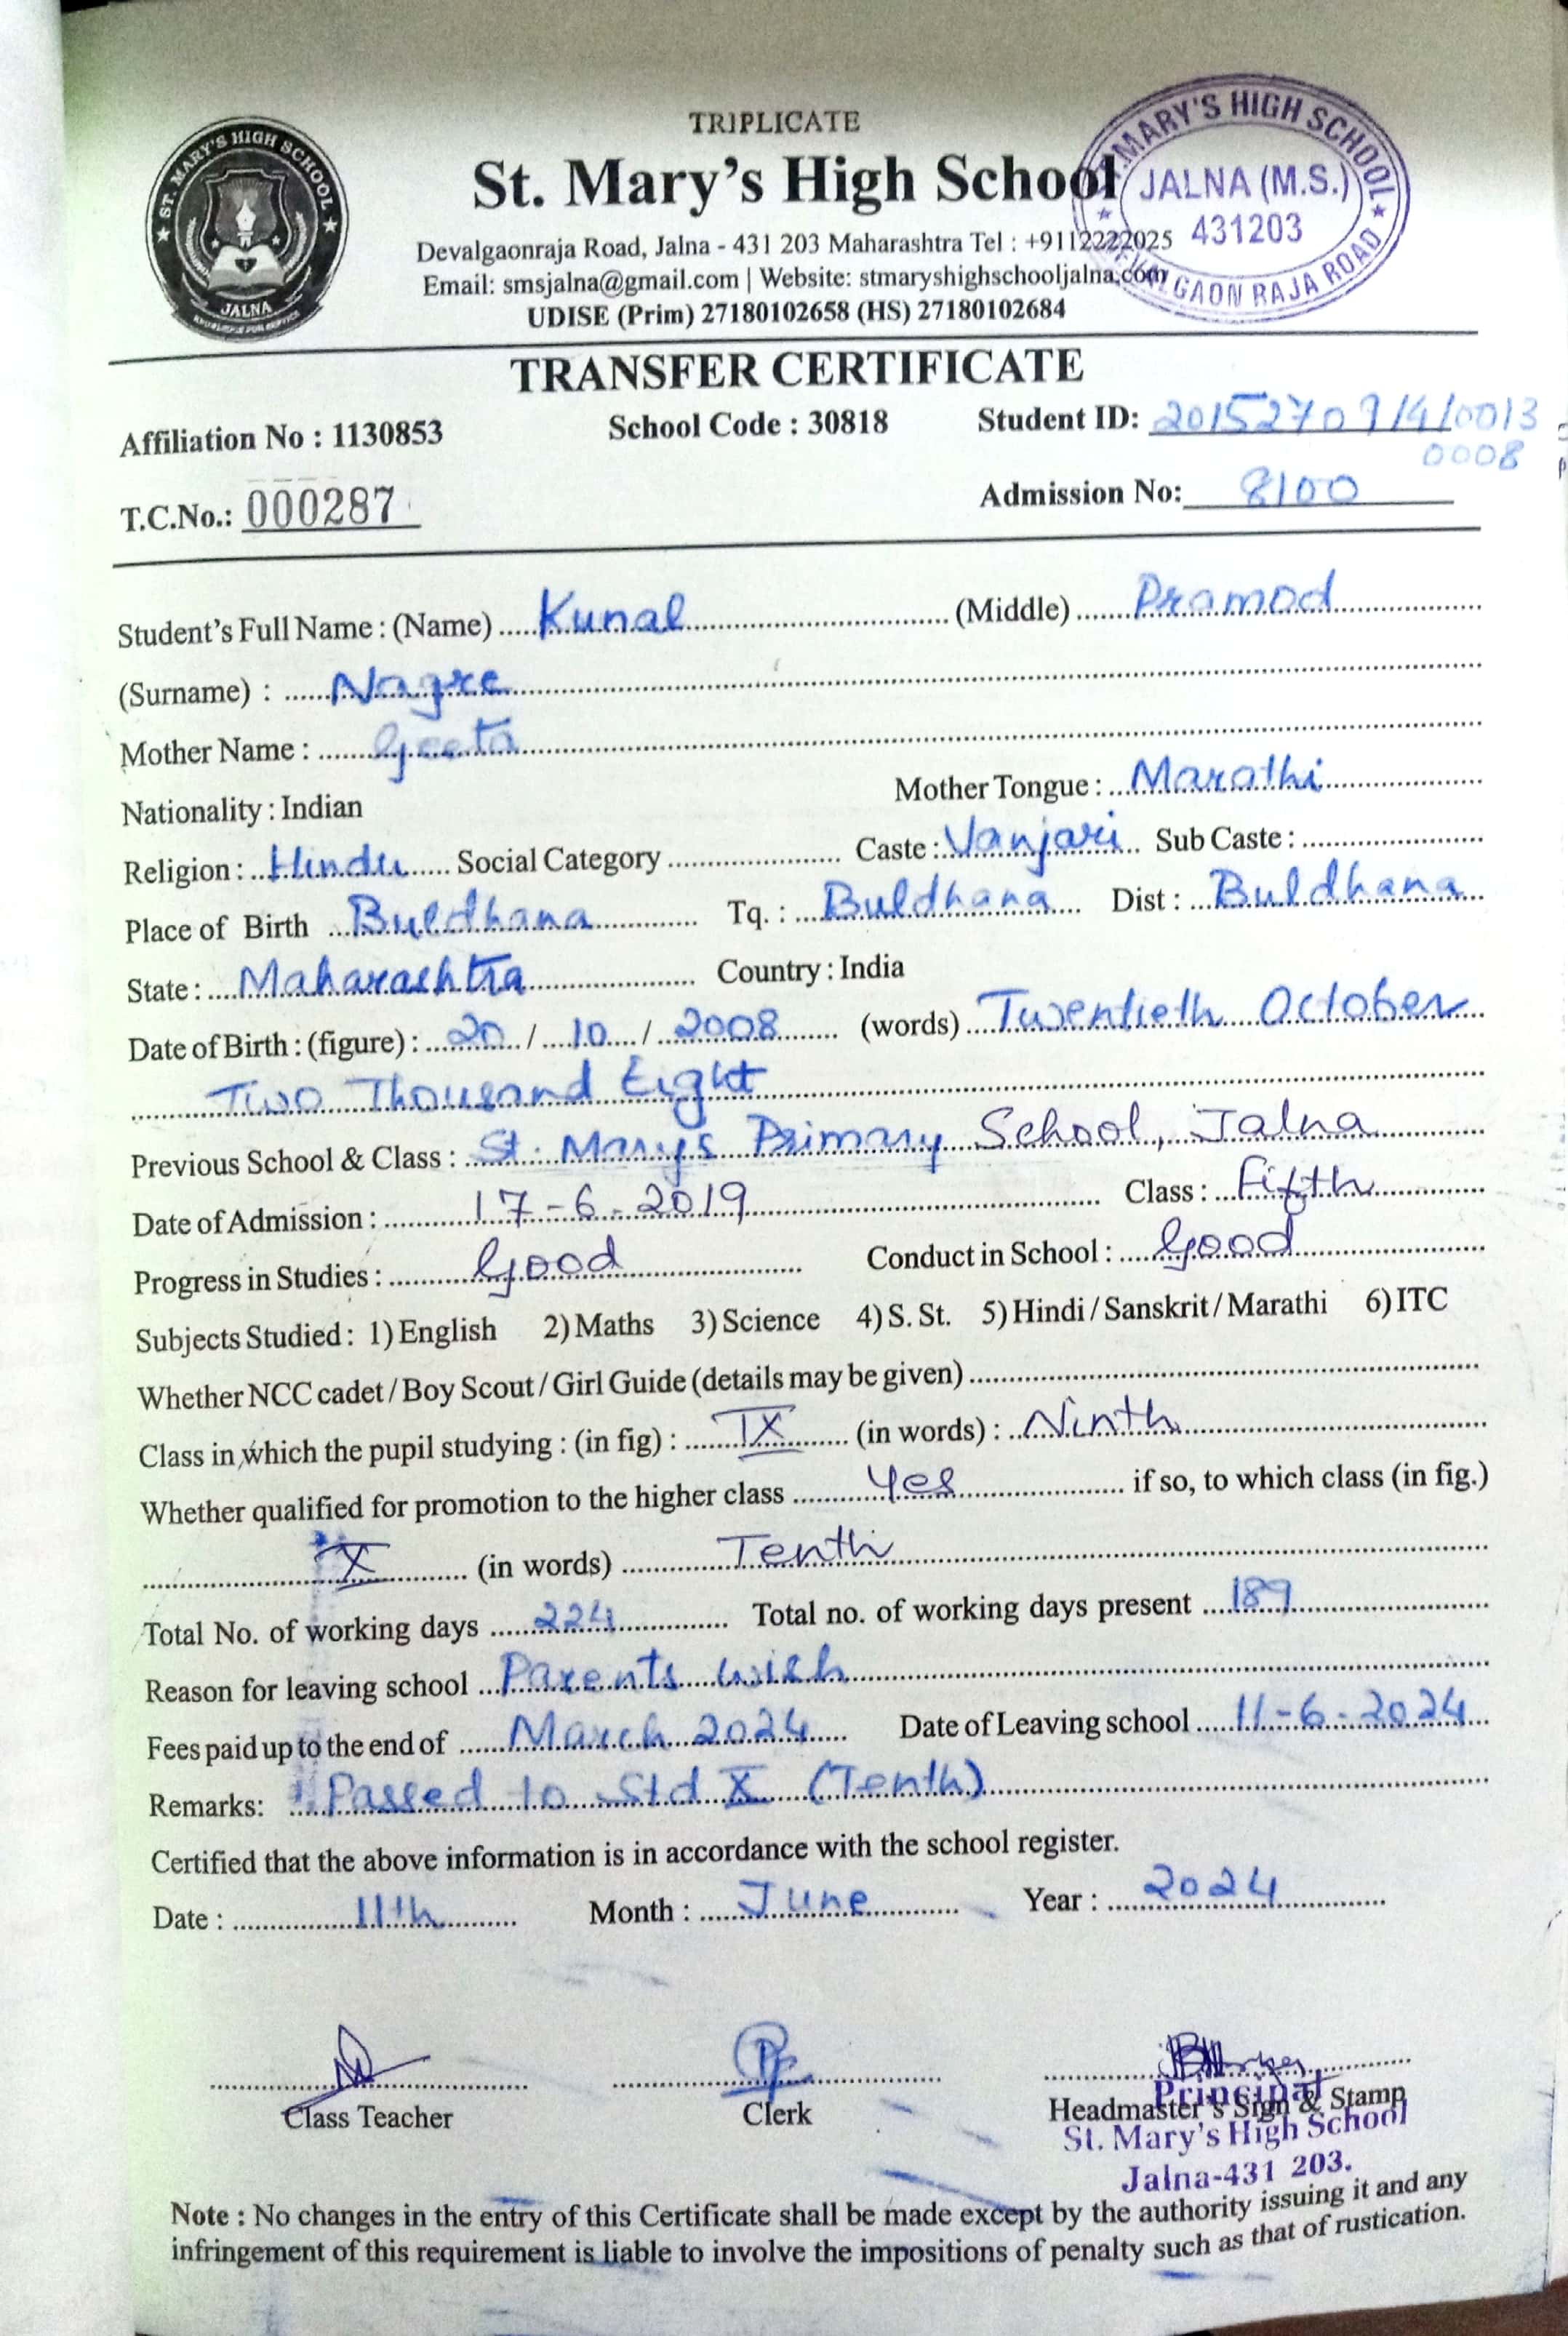 TRIPLICATE
St. Mary's High School
Devalgaonraja Road, Jalna - 431 203 Maharashtra Tel : +9112222025
Email: smsjalna@gmail.com | Website: stmaryshighschooljalna.com
UDISE (Prim) 27180102658 (HS) 27180102684
ST. MARY'S HIGH SCHOOL
JALNA
KNOWLEDGE FOR SERVICE
ST. MARY'S HIGH SCHOOL
JALNA (M.S.)
431203
GAON RAJA ROAD
TRANSFER CERTIFICATE
Affiliation No : 1130853 School Code : 30818 Student ID: 2015270914/0013
0008
T.C.No.: 000287 Admission No: 8100
Student's Full Name : (Name) Kunal (Middle) Pramod
(Surname) : Nagre
Mother Name : Geeta
Nationality : Indian Mother Tongue : Marathi
Religion : Hindu Social Category Caste : Vanjari Sub Caste :
Place of Birth Buldhana Tq. : Buldhana Dist : Buldhana
State : Maharashtra Country : India
Date of Birth : (figure) : 20 / 10 / 2008 (words) Twentieth October
Two Thousand Eight
Previous School & Class : St. Marys Primary School, Jalna
Date of Admission : 17-6-2019 Class : Fifth
Progress in Studies : Good Conduct in School : Good
Subjects Studied : 1) English 2) Maths 3) Science 4) S. St. 5) Hindi / Sanskrit / Marathi 6) ITC
Whether NCC cadet / Boy Scout / Girl Guide (details may be given)
Class in which the pupil studying : (in fig) : IX (in words) : Ninth
Whether qualified for promotion to the higher class Yes if so, to which class (in fig.)
X (in words) Tenth
Total No. of working days 224 Total no. of working days present 189
Reason for leaving school Parents wish
Fees paid up to the end of March 2024 Date of Leaving school 11-6-2024
Remarks: Passed to Std X (Tenth)
Certified that the above information is in accordance with the school register.
Date : 11th Month : June Year : 2024
Class Teacher Clerk Headmaster's Sign & Stamp
Principal
St. Mary's High School
Jalna-431 203.
Note : No changes in the entry of this Certificate shall be made except by the authority issuing it and any
infringement of this requirement is liable to involve the impositions of penalty such as that of rustication.